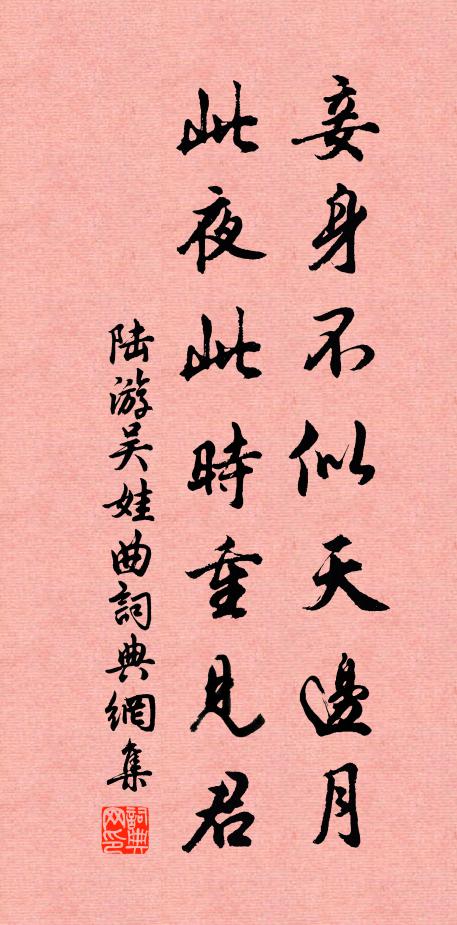 妾身不似天邊月
此夜此時重見君
陸游吴娃曲詞典網集
詞典网印